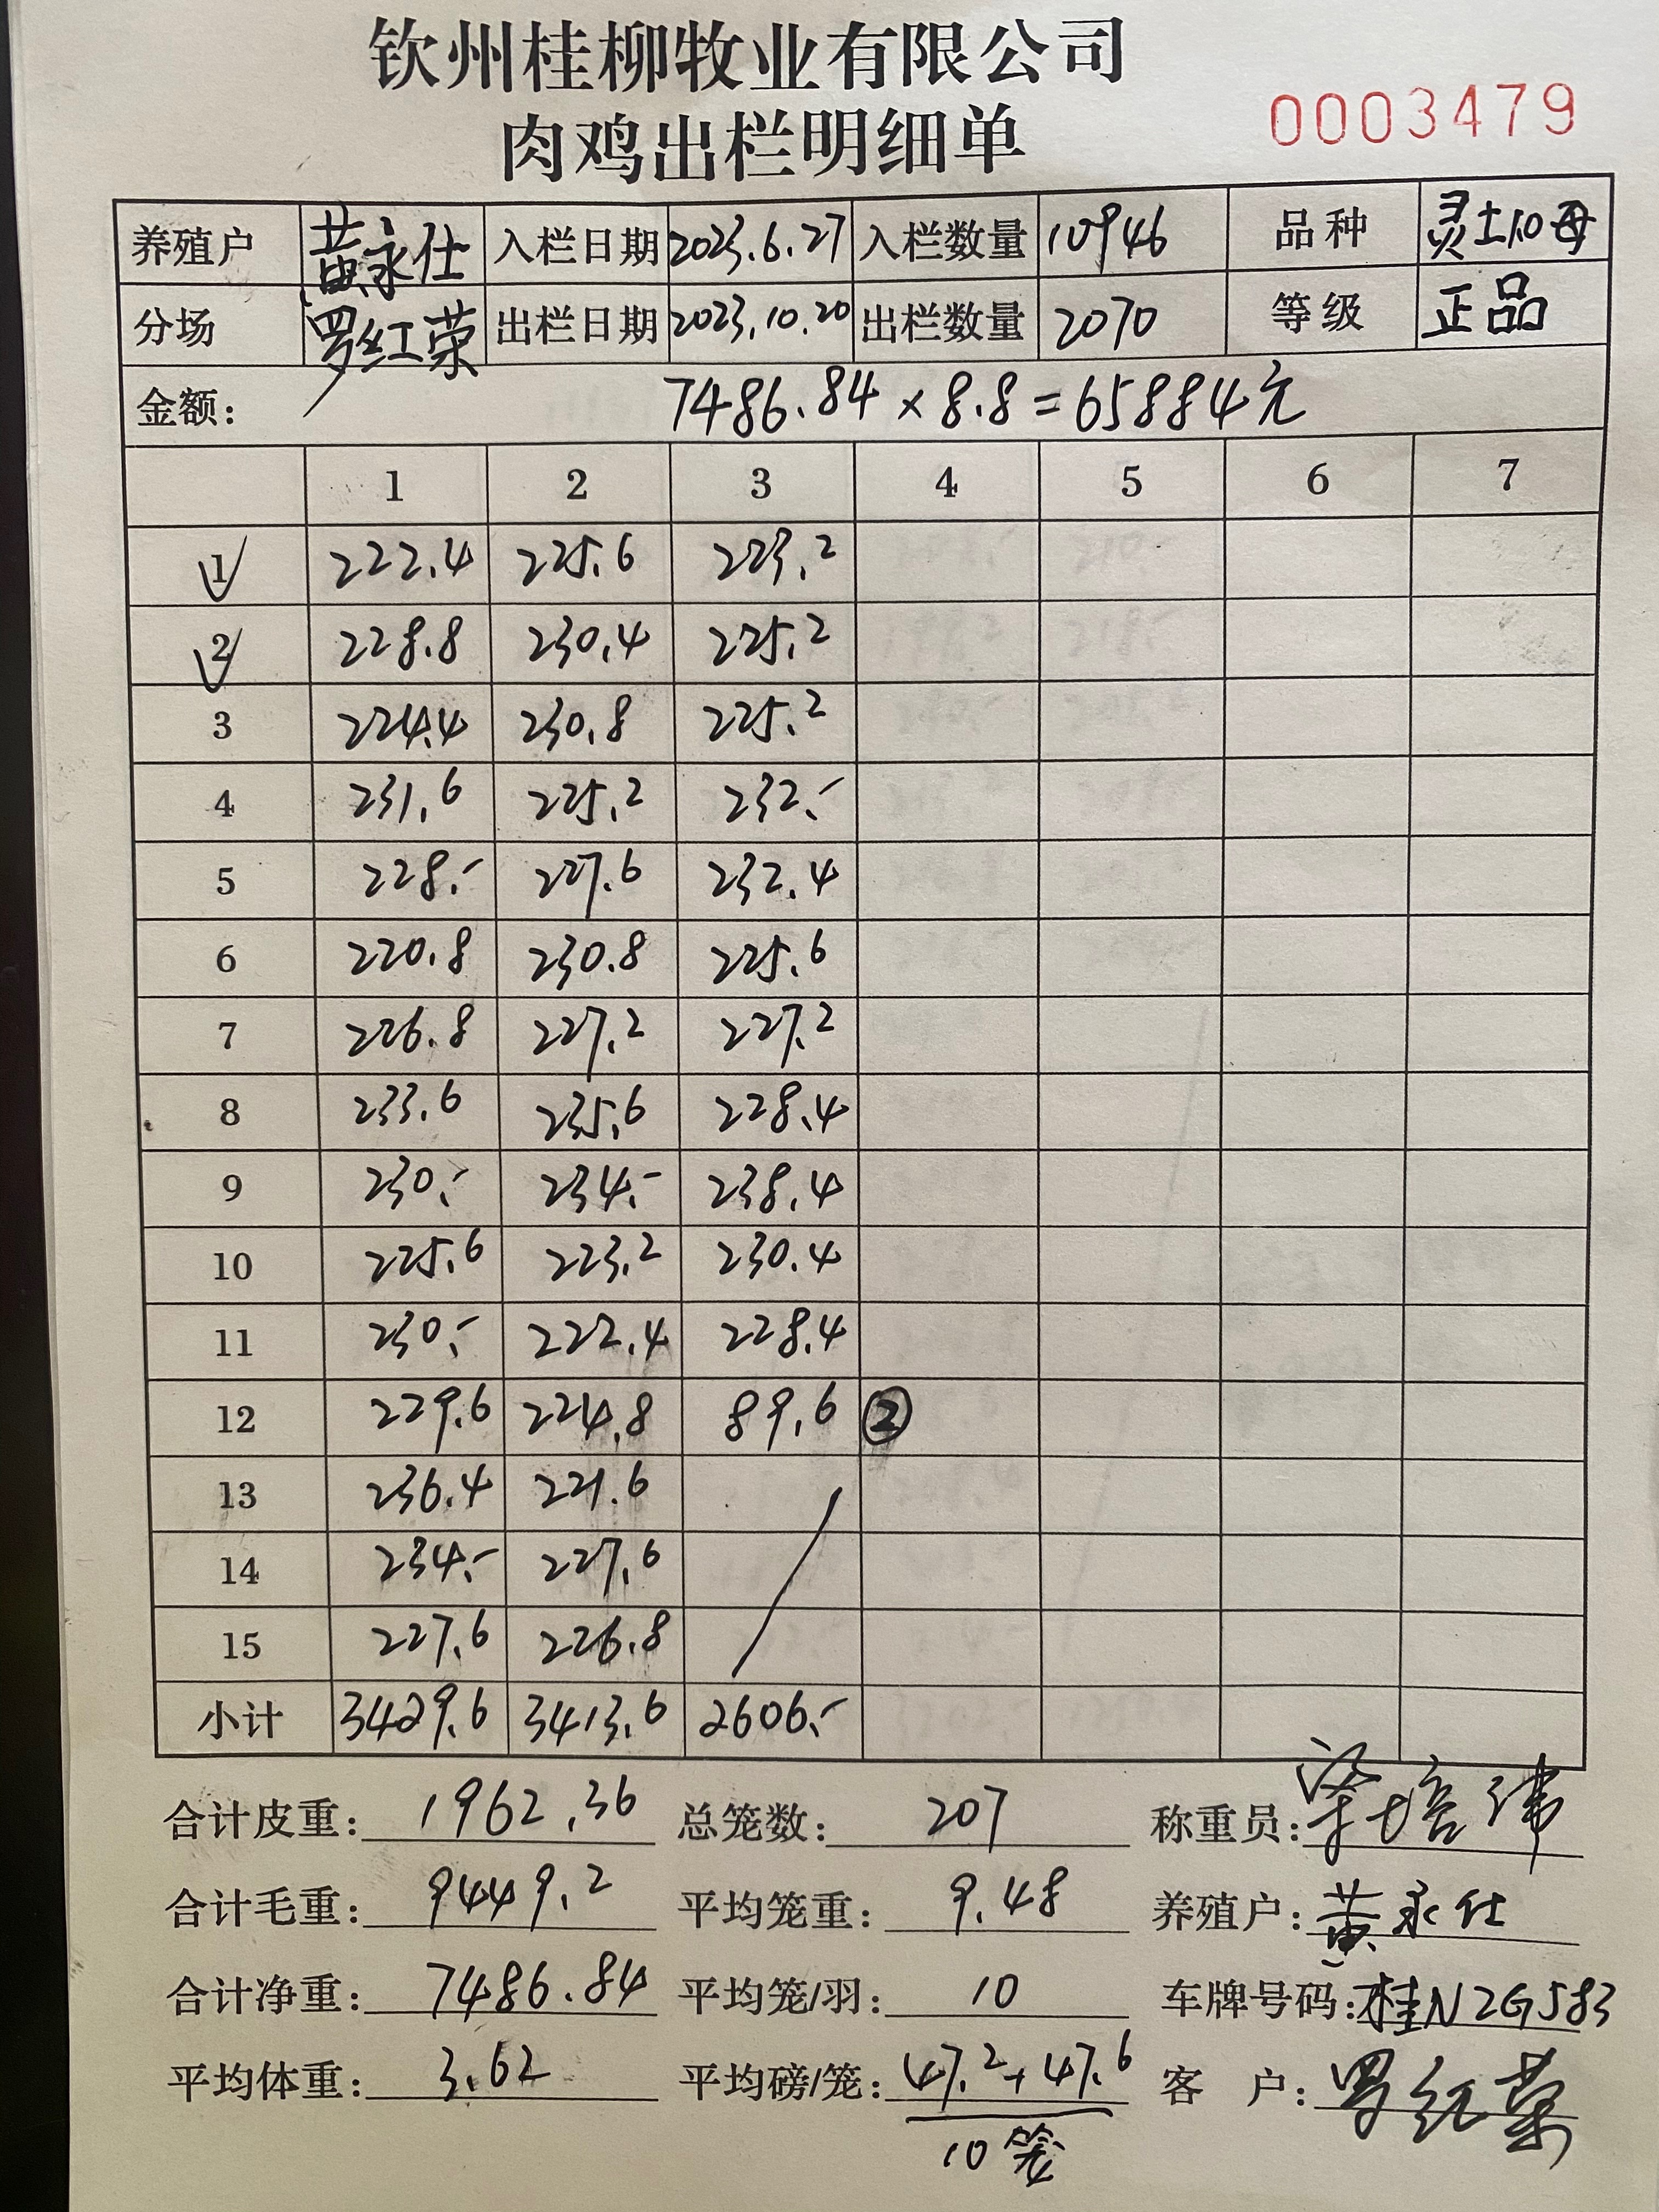 钦州桂柳牧业有限公司
肉鸡出栏明细单
0003479
养殖户 黄永仕 入栏日期 2023.6.27 入栏数量 10946 品种 灵土1.0母
分场 罗红荣 出栏日期 2023.10.20 出栏数量 2070 等级 正品
金额: 7486.84×8.8=65884元
1 2 3 4 5 6 7
1 222.4 225.6 223.2
2 228.8 230.4 225.2
3 224.4 230.8 225.2
4 231.6 225.2 232.-
5 228.- 227.6 232.4
6 220.8 230.8 225.6
7 226.8 227.2 227.2
8 233.6 235.6 228.4
9 230.- 234.- 238.4
10 225.6 223.2 230.4
11 230.- 222.4 228.4
12 229.6 224.8 89.6 ②
13 236.4 221.6
14 234.- 227.6
15 227.6 226.8
小计 3429.6 3413.6 2606.-
合计皮重: 1962.36 总笼数: 207 称重员: 梁培沣
合计毛重: 9449.2 平均笼重: 9.48 养殖户: 黄永仕
合计净重: 7486.84 平均笼/羽: 10 车牌号码: 桂N2G583
平均体重: 3.62 平均磅/笼: 47.2+47.6 客 户: 罗红荣
10笼